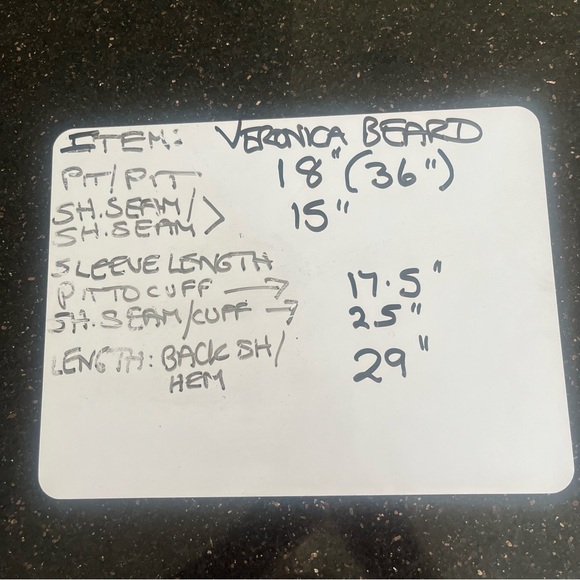 ITEM: VERONICA BEARD
PIT/PIT 18" (36")
SH.SEAM/
SH.SEAM > 15"
SLEEVE LENGTH
PIT TO CUFF → 17.5"
SH.SEAM/CUFF → 25"
LENGTH: BACK SH/
HEM 29"